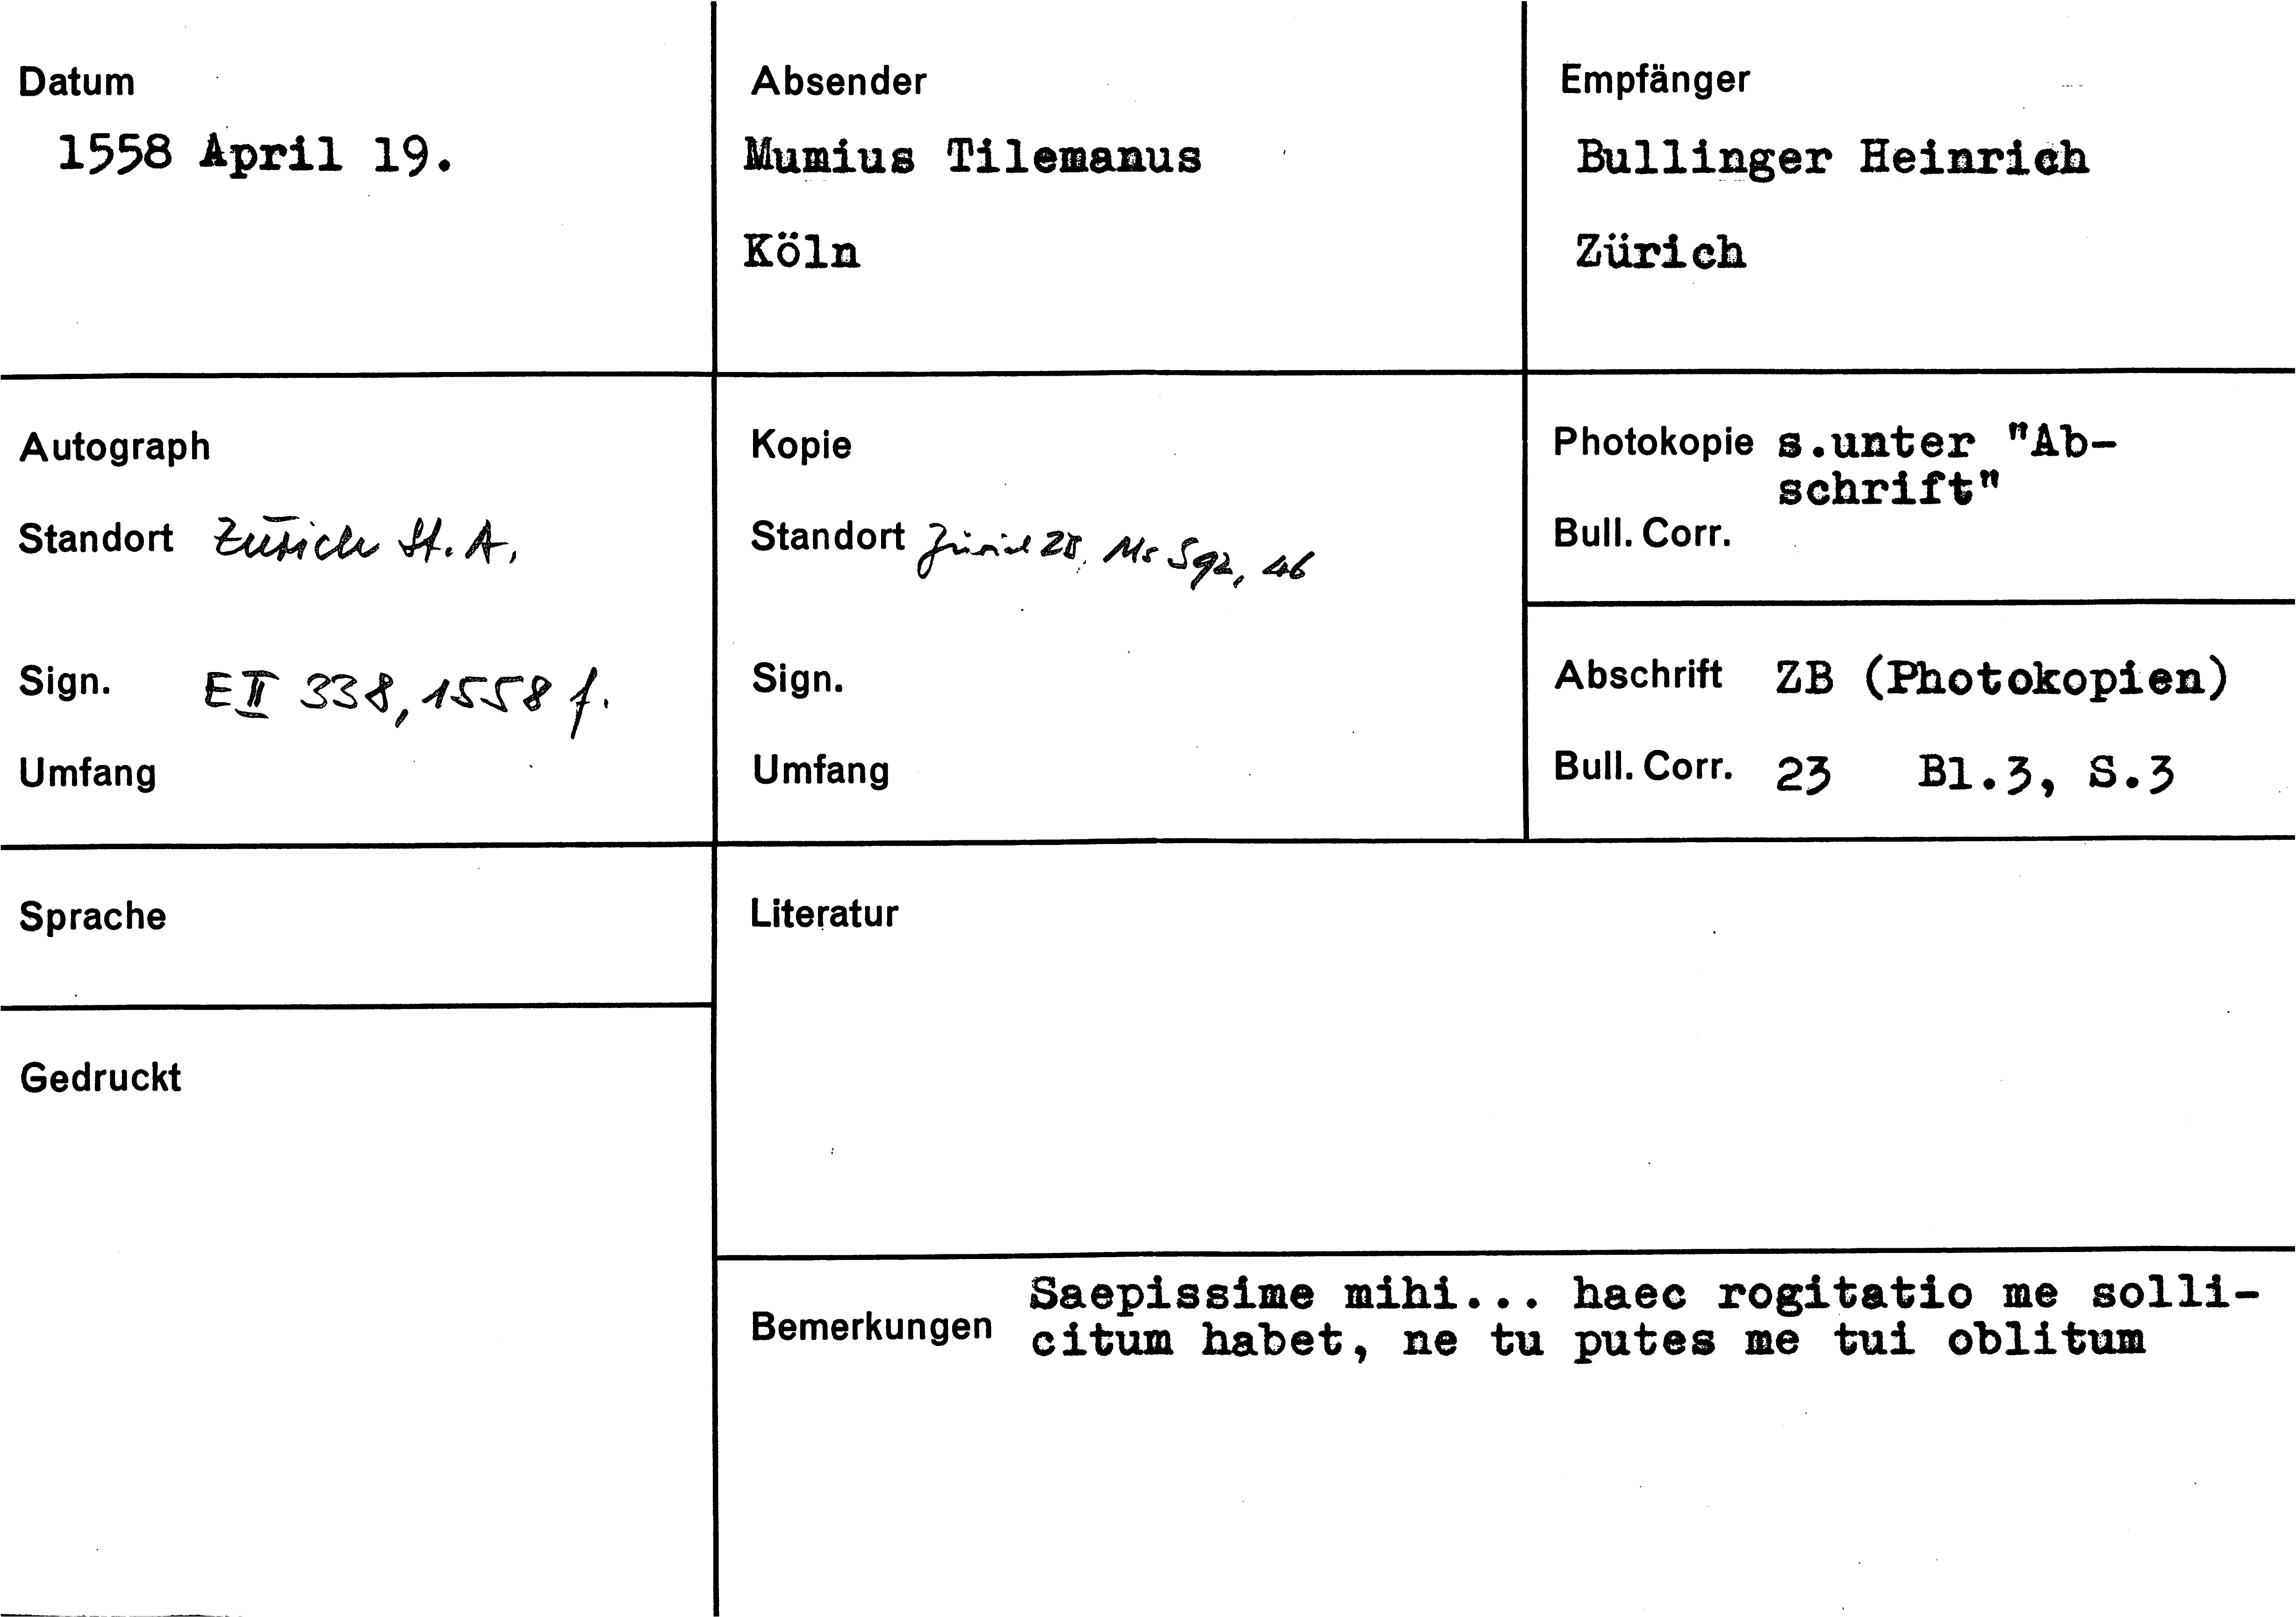 Datum
1558 April 19.
Absender
Mumius Tilemanus
Köln
Empfänger
Bullinger Heinrich
Zürich
Autograph
Standort Zürich St. A.
Sign. E II 338, 1558 f.
Umfang
Kopie
Standort Zürich ZB, Ms S 92, 46
Sign.
Umfang
Photokopie s.unter "Ab-
schrift"
Bull. Corr.
Abschrift ZB (Photokopien)
Bull. Corr. 23 Bl.3, S.3
Sprache
Literatur
Gedruckt
Bemerkungen Saepissime mihi... haec rogitatio me solli-
citum habet, ne tu putes me tui oblitum